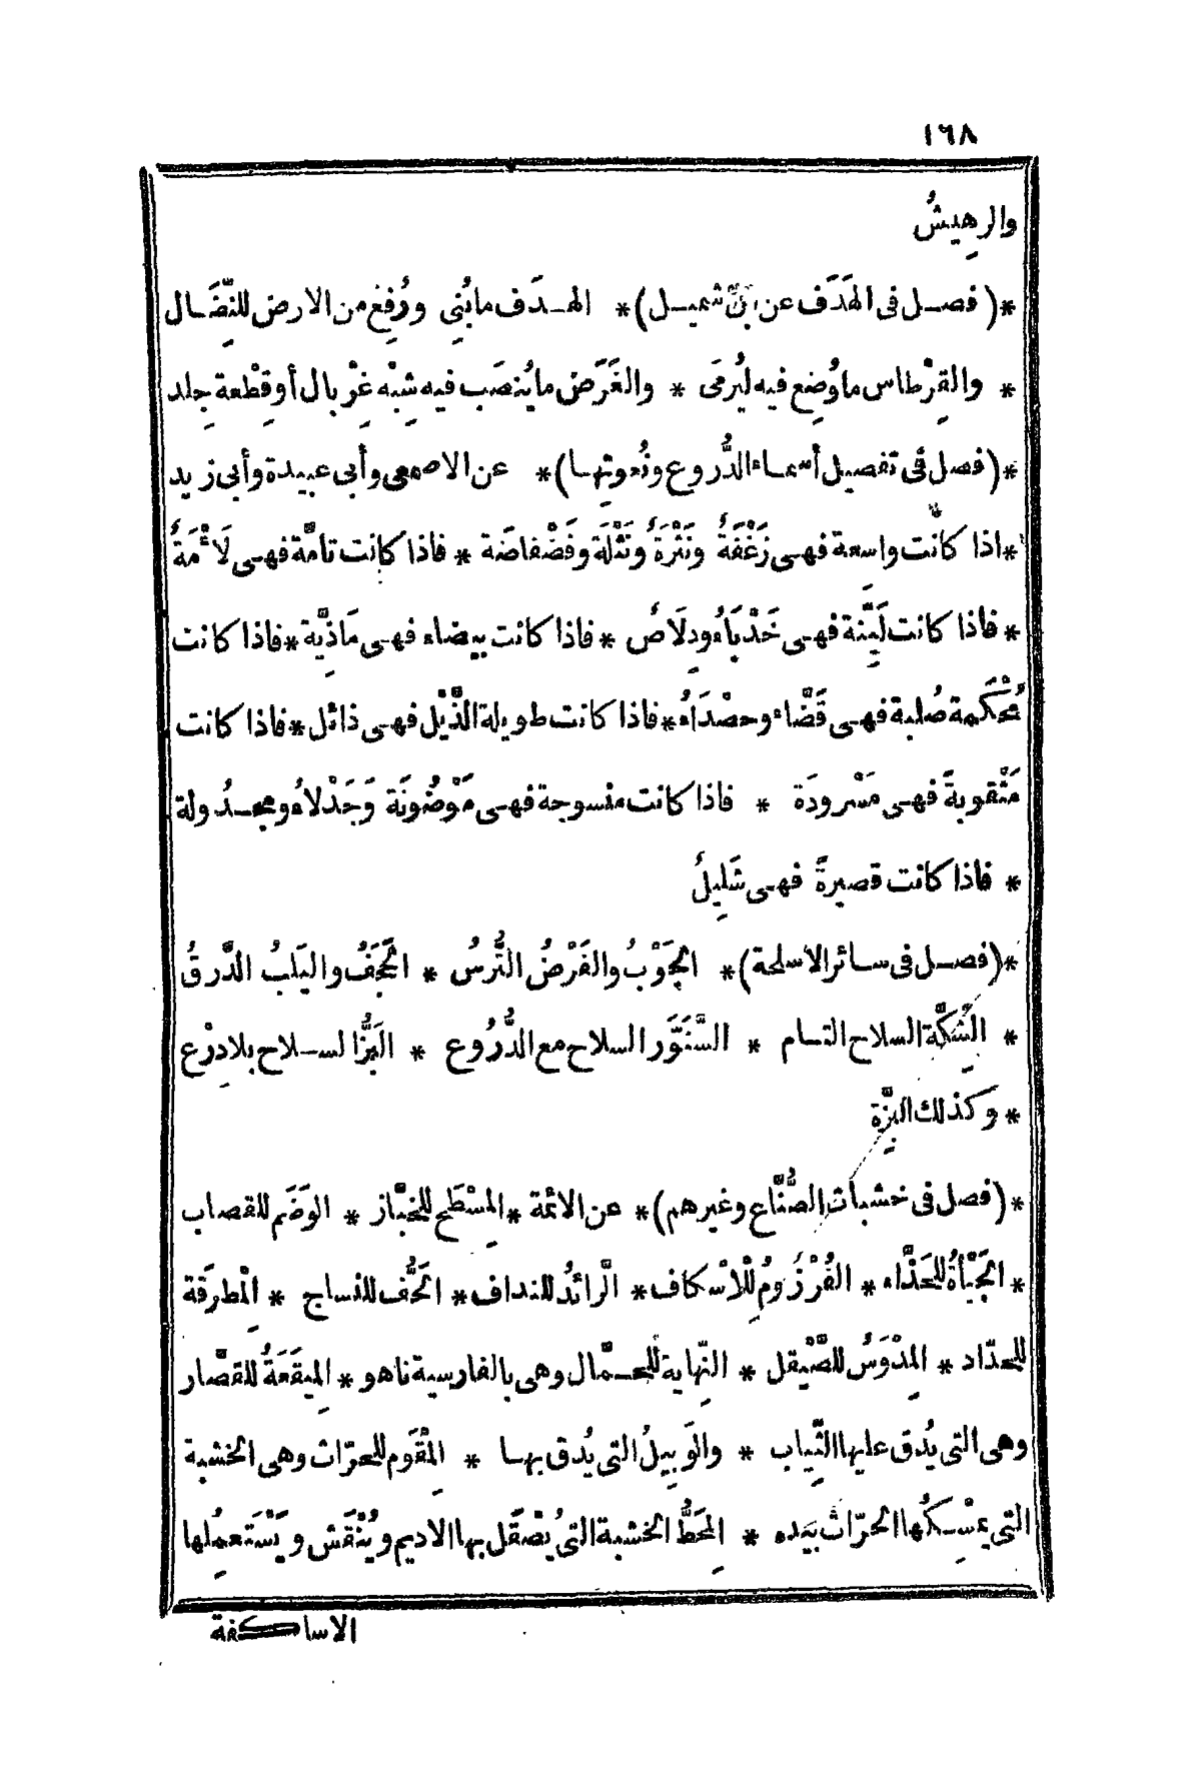 ١٦٨
والرهِيشُ
*(فصل فى الهَدَف عن ابن شميل)* الهدَف ما بُنِى ورُفِعَ من الارض للنِّضَال
* والقِرْطاس ما وُضِع فيه ليُرمَى * والغَرَض ما يُنصَب فيه شِبْه غِرْبال أو قِطْعة جِلد
*(فصل فى تفصيل أسماء الدُّروع ونُعوتِها)* عن الاصمعى وأبى عبيدة وأبى زيد
*اذا كانت واسعة فهى زَغْفَةٌ ونَثْرَةٌ ونَثْلَة وفَضْفاضَة * فاذا كانت تامَّة فهى لَأْمَةٌ
* فاذا كانت لَيِّنة فهى خَدْبَاءُ ودِلَاصٌ * فاذا كانت بيضاء فهى مَاذِيَّة * فاذا كانت
مُحْكَمة صُلبة فهى قَضَّاء وحصْدَاءُ * فاذا كانت طويلة الذَّيْل فهى ذائل * فاذا كانت
مَثْقوبةً فهى مَسْرودَة * فاذا كانت منسوجة فهى مَوْضُونَة وَجَدْلاءُ ومجدُولة
* فاذا كانت قصيرةً فهى شَلِيلٌ
*(فصل فى سائر الاسلحة)* الجَوْبُ والفَرْضُ التُّرسُ * الحَجَفُ واليَلَبُ الدَّرقُ
* الشِّكَّة السلاح التام * السَّنَوَّر السلاح مع الدُّرُوع * البَزُّ السلاح بلا دِرْع
* وكذلك البِزَّة
*(فصل فى خشبات الصُّنَّاع وغيرهم)* عن الائمة * المِسْطَح للخبَّاز * الوَضَم للقصاب
* الجَبْأةُ للحَذَّاء * الفُرْزُومُ لِلْاسْكاف * الرَّائدُ للنداف * الحَفُّ للنساج * المِطرَقة
للحدّاد * المِدْوَسُ للصَّيْقل * النِّهاية للحمَّال وهى بالفارسية ناهو * المِيقَعَةُ للقصّار
وهى التى يُدق عليها الثِّياب * والوَبِيلُ التى يُدق بها * المِقْوَم للحرّاث وهى الخشبة
التى يمْسِكُها الحرّاث بيَده * المِحَطُّ الخشبة التى يُصْقَل بها الاديم ويُنْقَش ويَسْتَعمِلها
الاساكفة